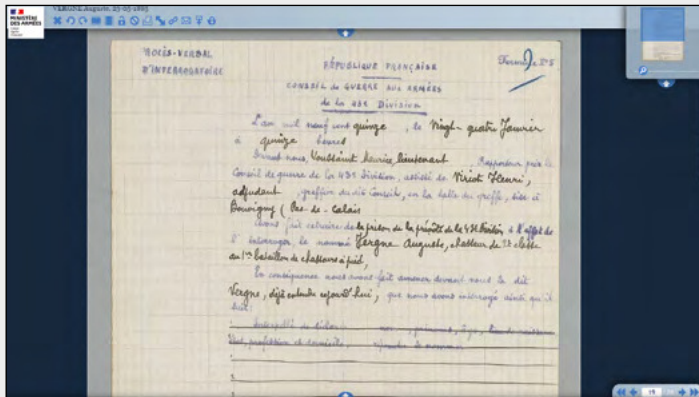 VERGNE Auguste, 23-05-1893
MINISTÈRE
DES ARMÉES
PROCÈS-VERBAL
D'INTERROGATOIRE
RÉPUBLIQUE FRANÇAISE
Formule N° 5
CONSEIL de GUERRE AUX ARMÉES
de la 43e Division
L'an mil neuf cent quinze, le Vingt-quatre Janvier
à quinze heures
Devant nous, Toussaint Maurice lieutenant, Rapporteur près le
Conseil de guerre de la 43e Division, assisté de Viriot Henri,
adjudant greffier du dit Conseil, en la salle du greffe, sise à
Bouvigny (Pas-de-Calais
Avons fait extraire de la prison de la prévôté de la 43e Division à l'effet de
l'interroger, le nommé Vergne Auguste, chasseur de 2e classe
au 1er bataillon de chasseurs à pied,
En conséquence nous avons fait amener devant nous le dit
Vergne, déjà entendu aujourd'hui, que nous avons interrogé ainsi qu'il
suit:
Interpellé de nom, prénoms, âge, lieu de naissance
état, profession et domicile, répondu se nommer
15